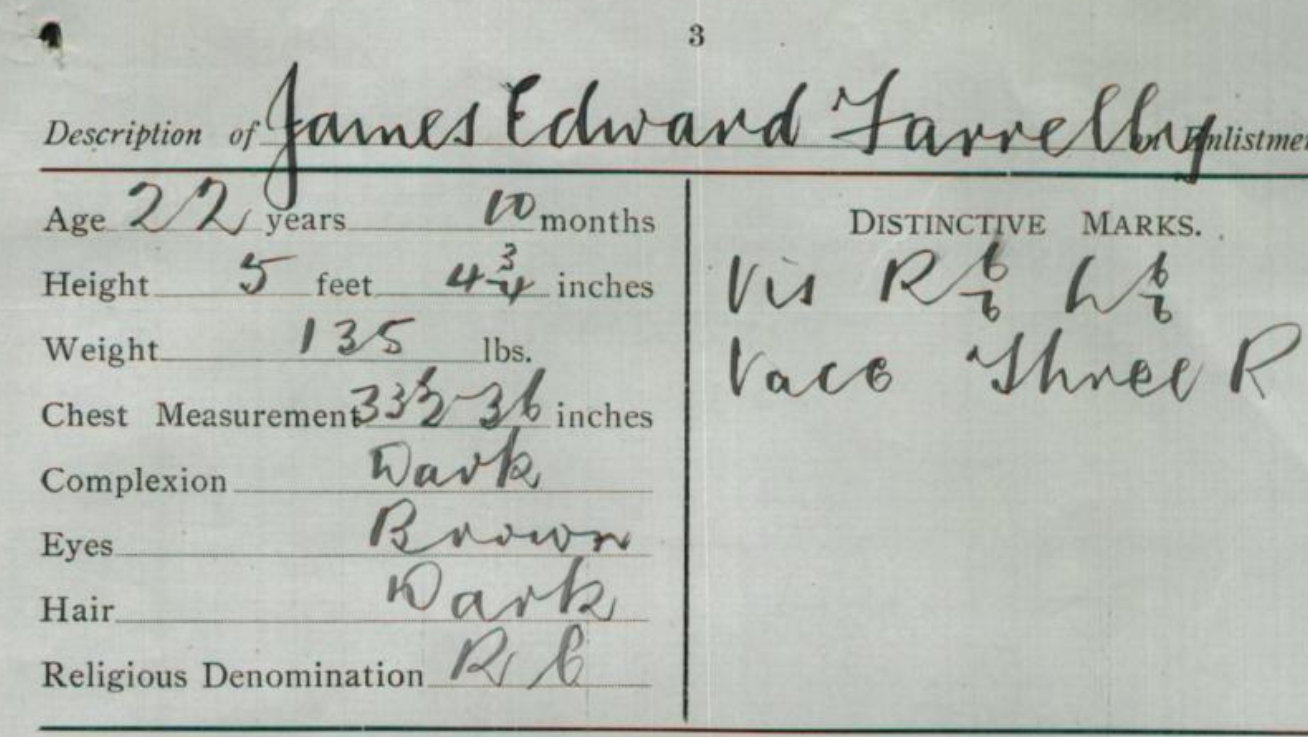 3
Description of James Edward Farrelly on Enlistmen
Age 22 years 10 months
Height 5 feet 4 3/4 inches
Weight 135 lbs.
Chest Measurement 33½-36 inches
Complexion Dark
Eyes Brown
Hair Dark
Religious Denomination R C
DISTINCTIVE MARKS.
Vis R 6/6 L 6/6
Vacc Three R